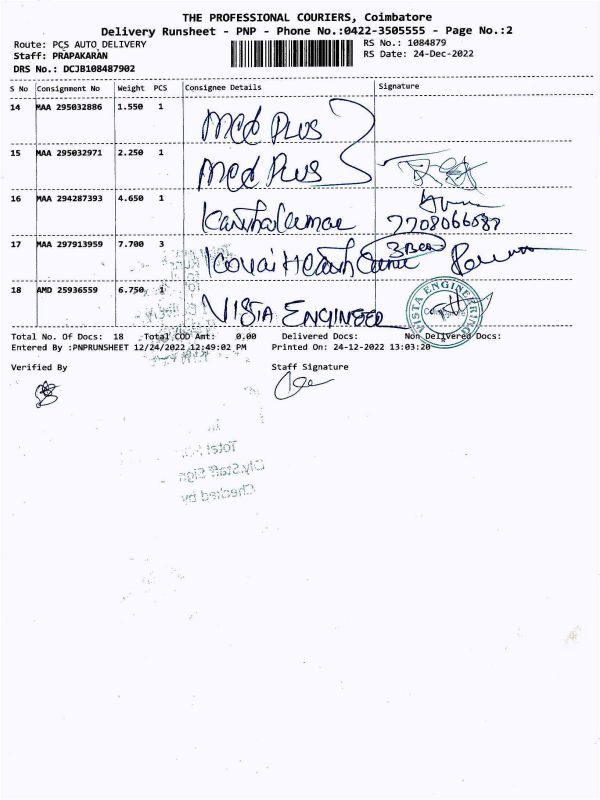 THE PROFESSIONAL COURIERS, Coimbatore
Delivery Runsheet - PNP - Phone No.:0422-3505555 - Page No.:2
Route: PCS AUTO DELIVERY
RS No.: 1084879
Staff: PRAPAKARAN
RS Date: 24-Dec-2022
DRS No.: DCJB108487902
S No Consignment No Weight PCS Consignee Details Signature
14 MAA 295032886 1.550 1 Med Plus
15 MAA 295032971 2.250 1 Med Plus
16 MAA 294287393 4.650 1 7708066087
17 MAA 297913959 7.700 3 Kovai Heart
18 AMD 25936559 6.750 1 VISTA ENGINEER
VISTA ENGINEERING
Total No. Of Docs: 18 Total COD Amt: 0.00 Delivered Docs: Non Delivered Docs:
Entered By :PNPRUNSHEET 12/24/2022 12:49:02 PM Printed On: 24-12-2022 13:03:20
Verified By Staff Signature
Total
Dly.Staff Sign
Checked by